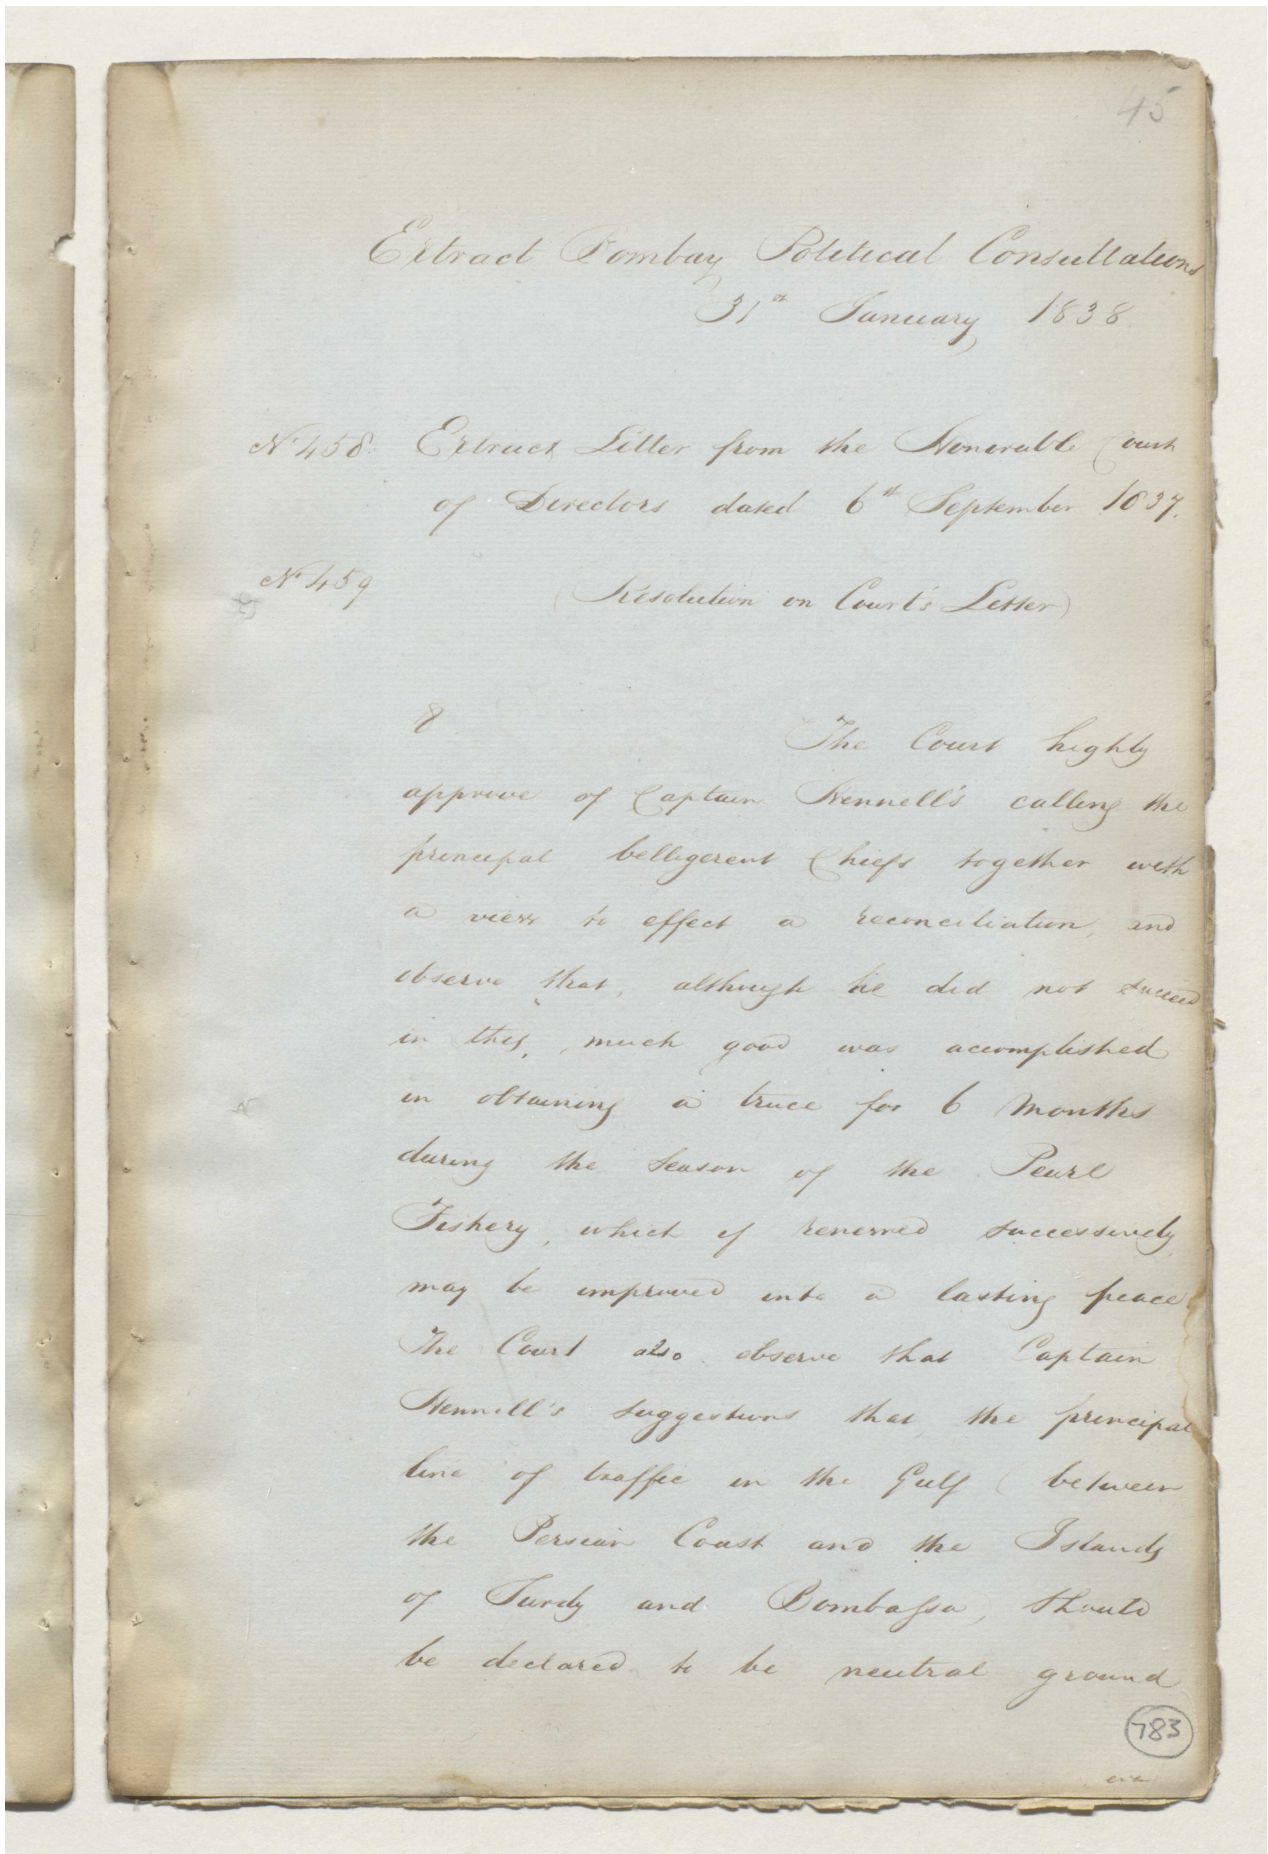 45
Extract Bombay Political Consultations
31st January 1838
No 458. Extract Letter from the Honorable Court
of Directors dated 6th September 1837.
No 459
(Resolution on Court's Letter)
8
The Court highly
approve of Captain Hennell's calling the
principal belligerent Chiefs together with
a view to effect a reconciliation, and
observe that, although he did not succeed
in this, much good was accomplished
in obtaining a truce for 6 Months
during the Season of the Pearl
Fishery, which if renewed successively
may be improved into a lasting peace
The Court also observe that Captain
Hennell's suggestions that the principal
line of traffic in the Gulf (between
the Persian Coast and the Islands
of Surdy and Bombassa, should
be declared to be neutral ground
783